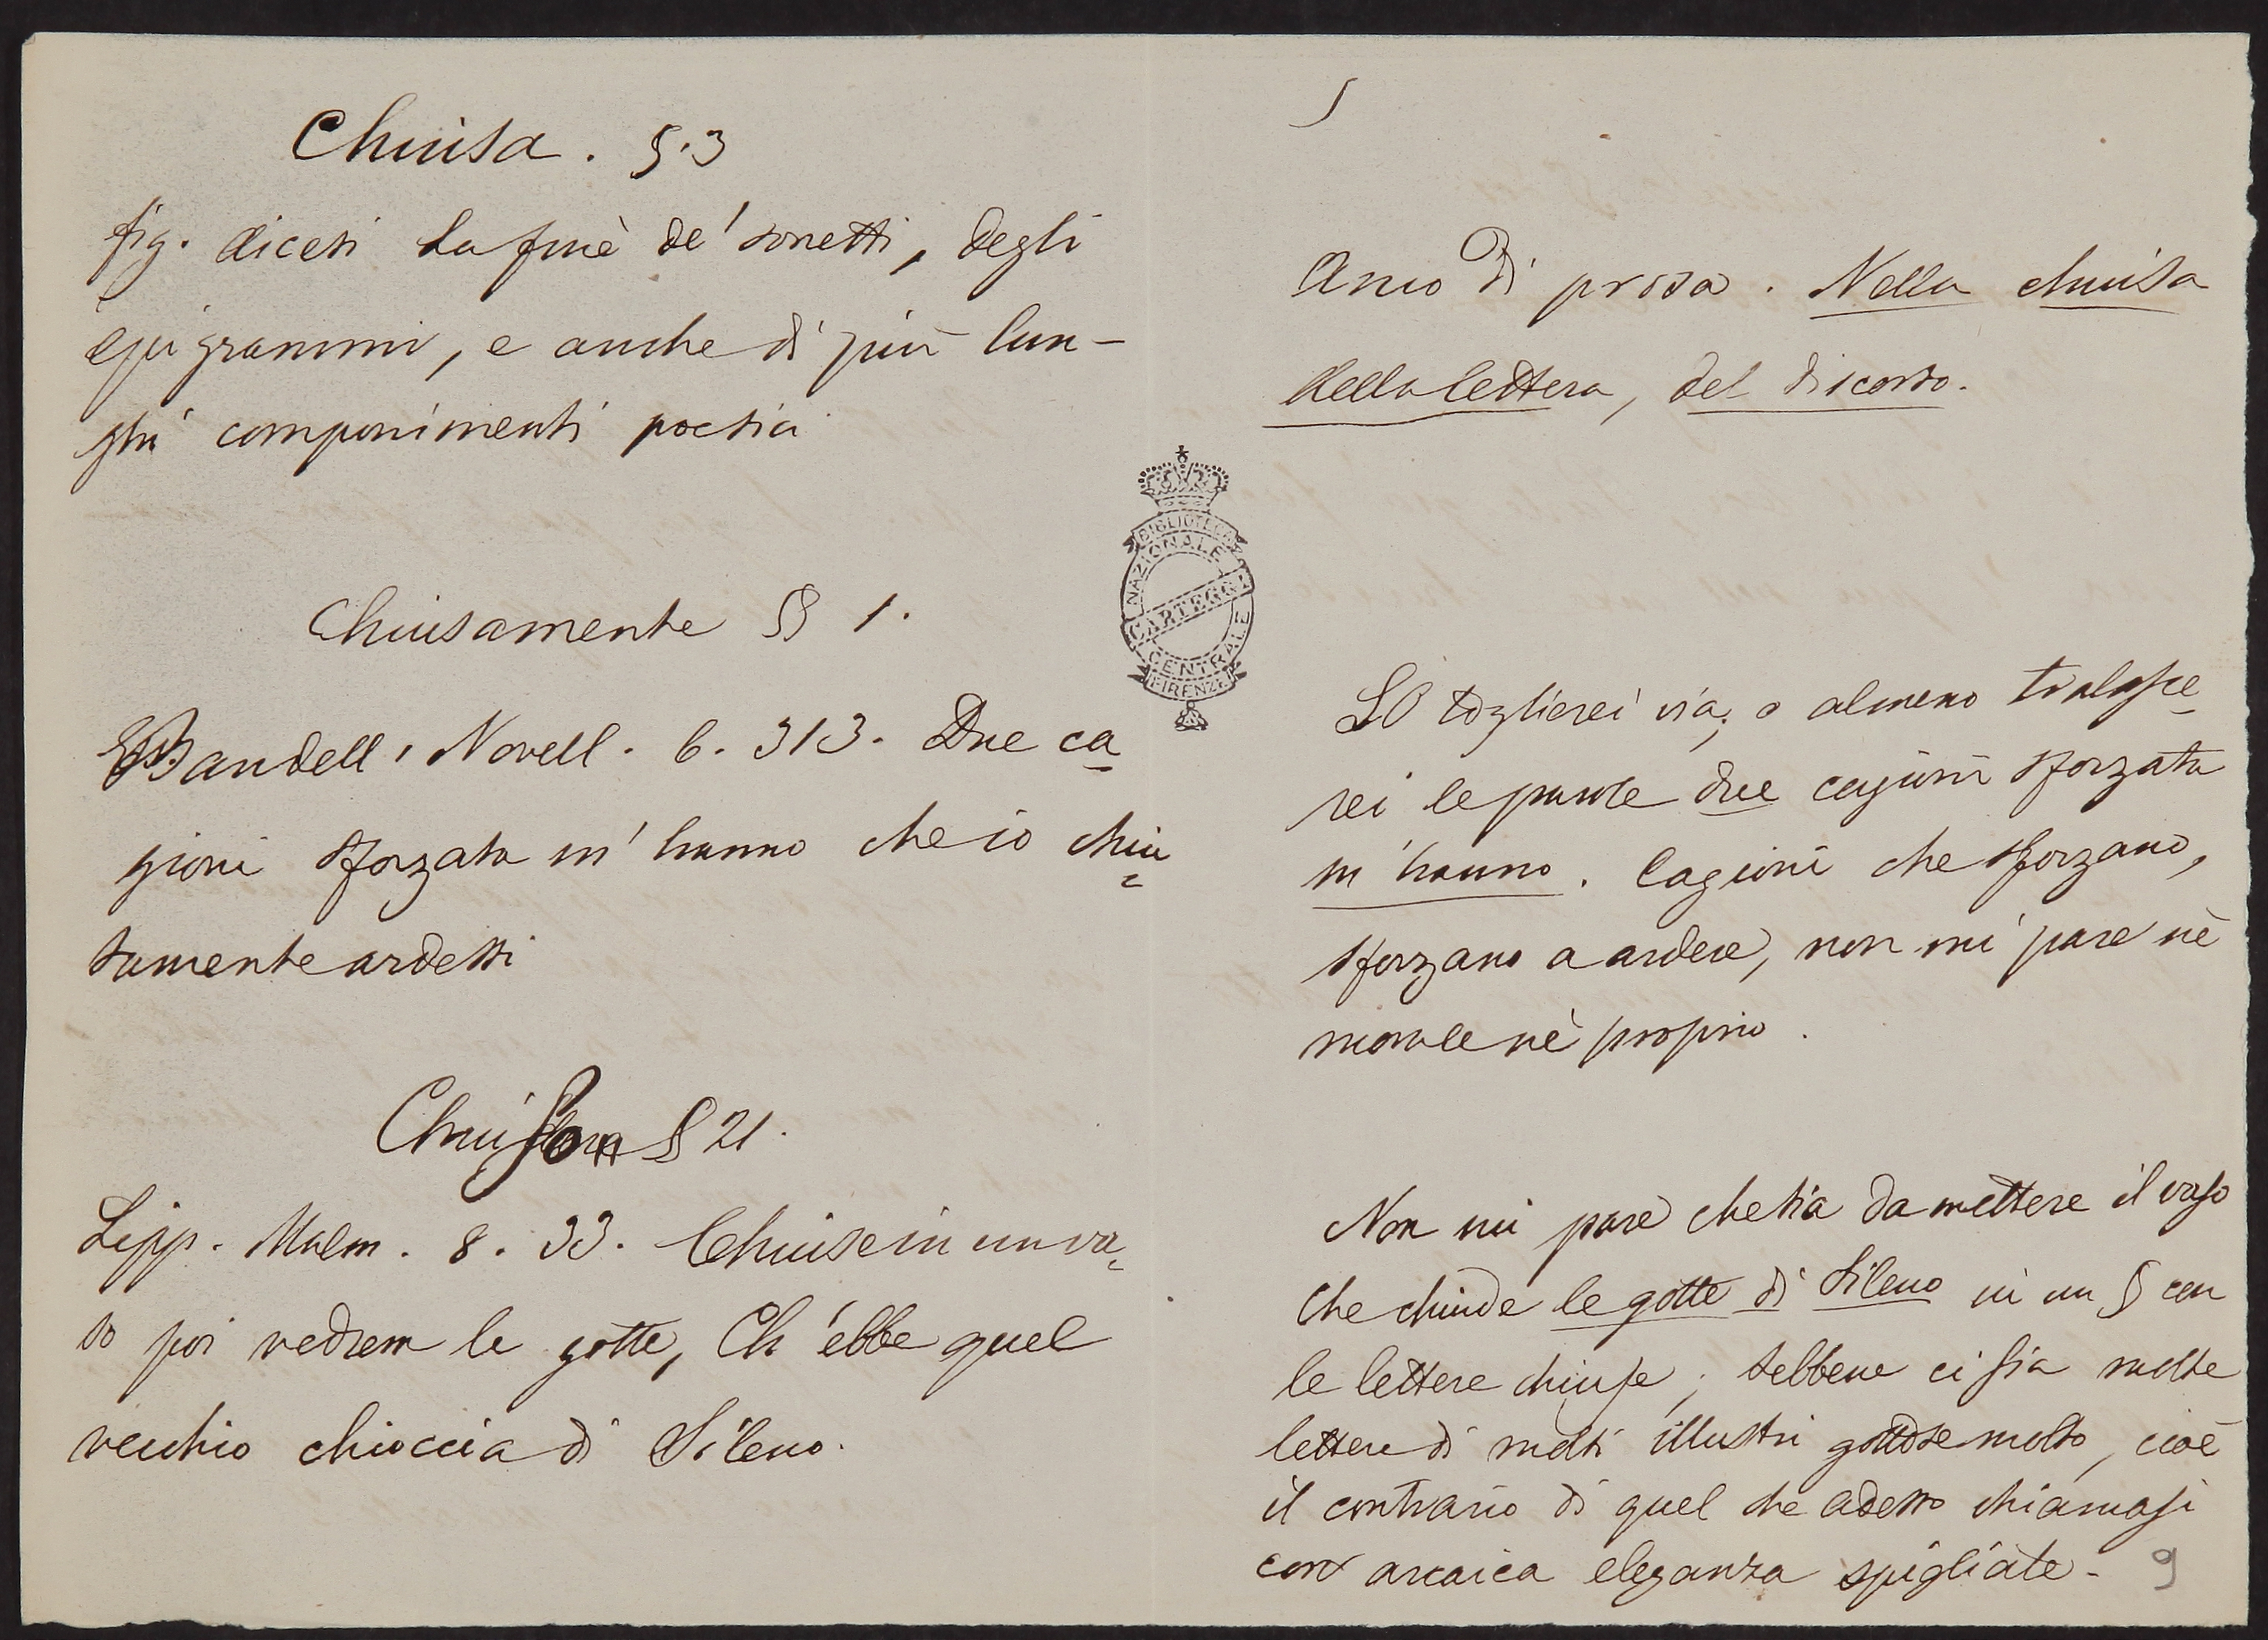 Chiusa. §. 3
fig. dicesi la fine de' sonetti, degli
epigrammi, e anche di più lun-
ghi componimenti poetici
Chiusamente § 1.
Bandell. Novell. 6. 313. Due ca-
gioni sforzato m' hanno che io chiu=
samente ardessi
Chiuso § 21.
Lipp. Malm. 8. 33. Chiuse in un va=
so poi vedrem le gotte, Ch' ebbe quel
vecchio chioccia di Sileno.
BIBLIOTECA
NAZIONALE
CARTEGGI
CENTRALE
FIRENZE
Anco di prosa. Nella chiusa
della lettera, del discorso.
Lo toglierei via; o almeno tralasce-
rei le parole due cagioni sforzato
m' hanno. Cagioni che sforzano,
sforzano a ardere, non mi pare nè
morale nè proprio.
Non mi pare che sia da mettere il vaso
che chiude le gotte di Sileno in un § con
le lettere chiuse; sebbene ci sia molte
lettere di molti illustri gottose molto, cioè
il contrario di quel che adesso chiamasi
con arcaica eleganza spigliate.
9